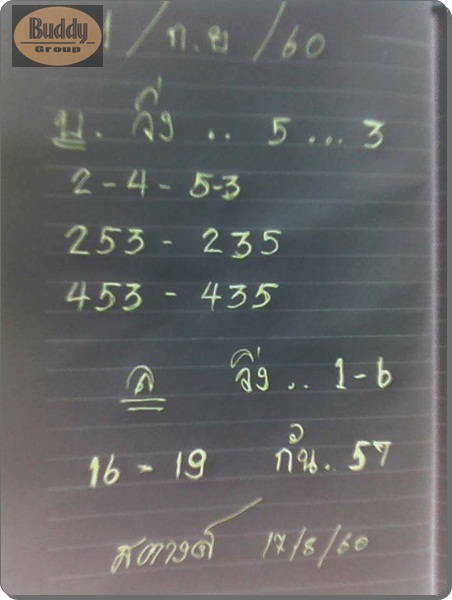 Buddy
Group
1 / ก.ย / 60
บ. วิ่ง .. 5 ... 3
2 - 4 - 5-3
253 - 235
453 - 435
ล วิ่ง .. 1-6
16 - 19 กัน. 57
สตางค์ 17/8/60